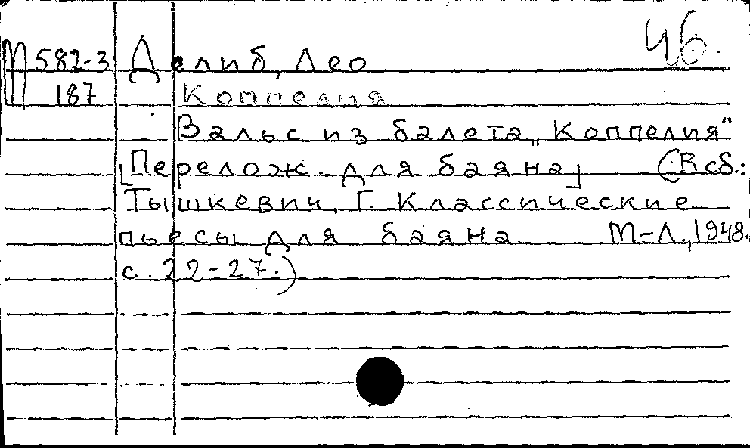 46.
М 582-3 Делиб, Лео
187 Коппелия
Вальс из балета „Коппелия"
[Перелож. для баяна] (В сб.:
Тышкевич, Г. Классические
пьесы для баяна М-Л., 1948.
с. 22-27.)